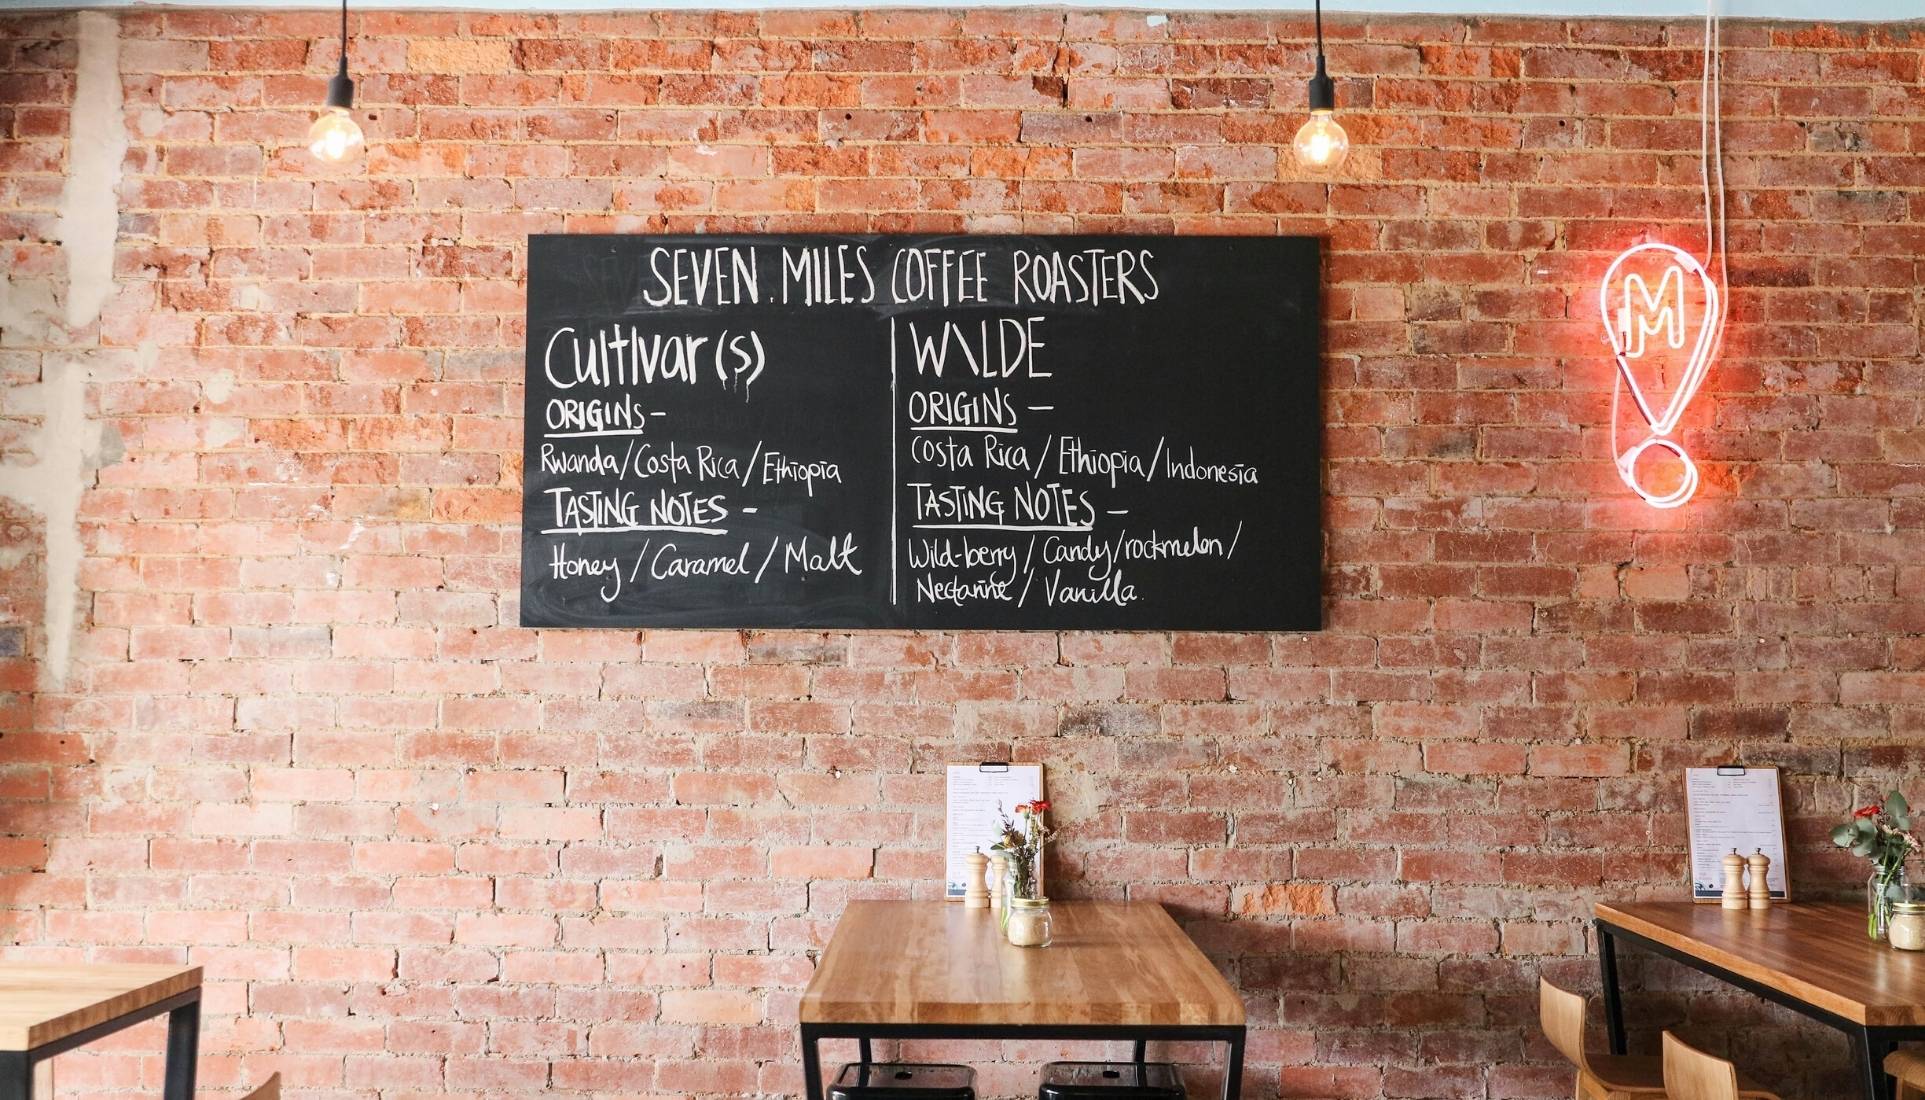 SEVEN.MILES COFFEE ROASTERS
Cultivar(s)
ORIGINS-
Rwanda/Costa Rica/Ethiopia
TASTING NOTES -
Honey / Caramel / Malt
WILDE
ORIGINS —
Costa Rica / Ethiopia / Indonesia
TASTING NOTES —
Wild-berry / Candy/rockmelon /
Nectarine / Vanilla.
M